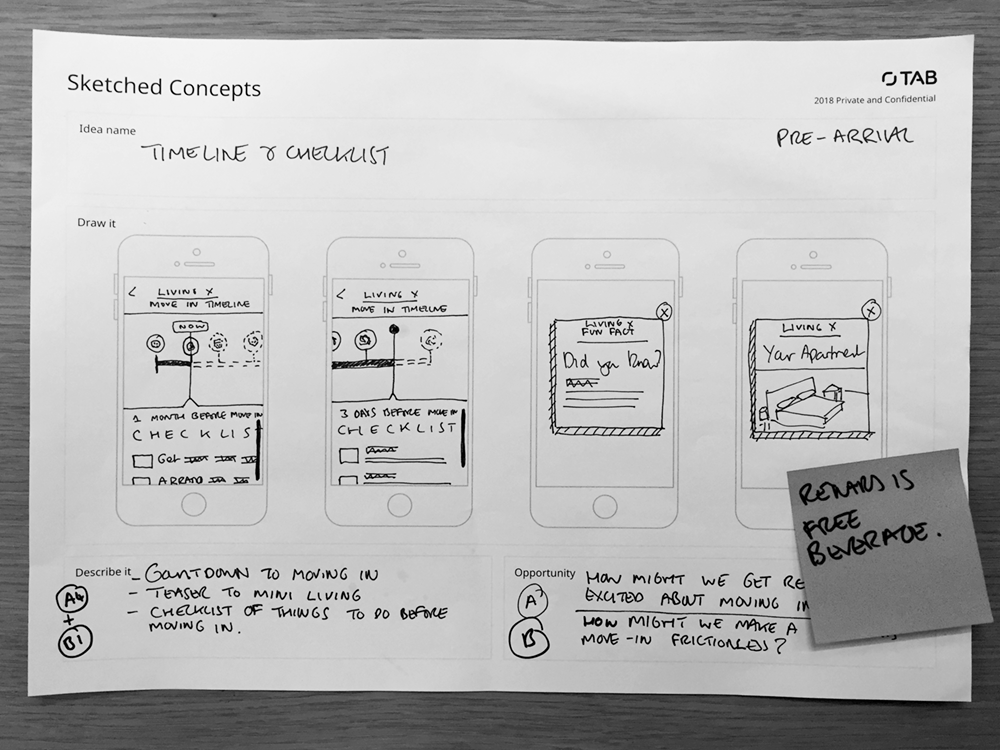 Sketched Concepts
TAB
2018 Private and Confidential
Idea name
TIMELINE & CHECKLIST
PRE-ARRIVAL
Draw it
< LIVING X
MOVE IN TIMELINE
NOW
1 MONTH BEFORE MOVE IN
CHECKLIST
Get
< LIVING X
MOVE IN TIMELINE
3 DAYS BEFORE MOVE IN
CHECKLIST
X
LIVING X
FUN FACT
Did you know?
X
LIVING X
Your Apartment
REWARD IS
FREE
BEVERAGE.
Describe it
- COUNTDOWN TO MOVING IN
- TEASER TO MINI LIVING
- CHECKLIST OF THINGS TO DO BEFORE
MOVING IN.
A4
+
B1
Opportunity
HOW MIGHT WE GET RE
EXCITED ABOUT MOVING IN
HOW MIGHT WE MAKE A
MOVE-IN FRICTIONLESS?
A
B